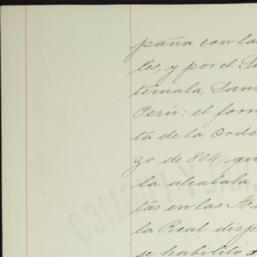 paña con la
les, y por el
temala, San
Perú: el for
ta de la Orde
zo de 804, que
la alcabala
tas en las
la Real disp
se habilitó